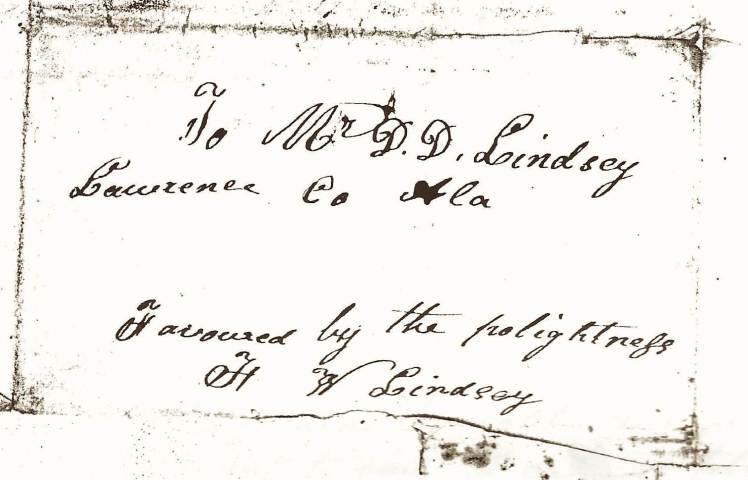 To Mr D. D. Lindsey
Lawrence Co Ala
Favoured by the polightness
F W Lindsey